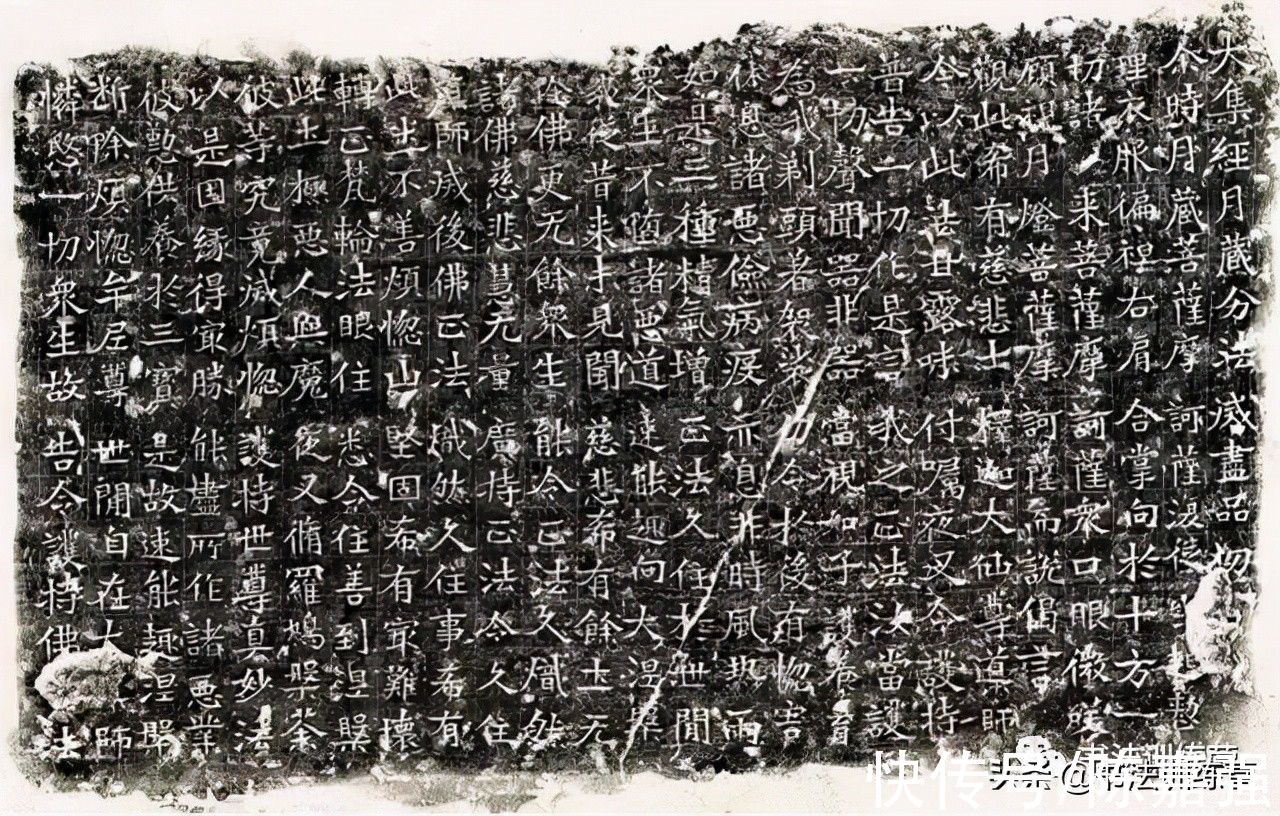 大集經月藏分法滅盡品 初
尒時月藏菩薩摩訶薩復從 起慇
理衣服偏袒右肩合掌向於十方一
切諸來菩薩摩訶薩衆口眼微
頋視月燈菩薩摩訶薩而說偈言
觀此希有慈悲士釋迦大仙尊導師
今以此甘露味付嘱夜叉令護持
普告一切作是言我之正法汝當護
一切聲聞器非器當視如子護養育
為我剃頭著袈裟 令於後有惱害
休息諸悪儉病疫亦息非時風熱雨
如是三種精氣增正法久住於世間
衆生不堕諸悪道速能趣向大涅槃
我從昔来未見聞慈悲希有餘士无
除佛更无餘衆生能令正法久熾然
諸佛慈悲慧无量廣持正法令久住
真師滅後佛正法熾然久住事希有
此土不善煩惱山堅固希有㝡難壞
轉正梵輪法眼住悉令住善到涅槃
此土極惡人與魔夜叉脩羅鳩槃荼
彼等究竟滅煩惱護持世尊真妙法
以是因緣得㝡勝能盡所作諸悪業
彼懃供養於三寳是故速能趣涅槃
断除煩惱牟尼尊世間自在大 師
憐愍一切衆生故告令護持佛 法
头条@书法训练营
快传号/陈嘉强